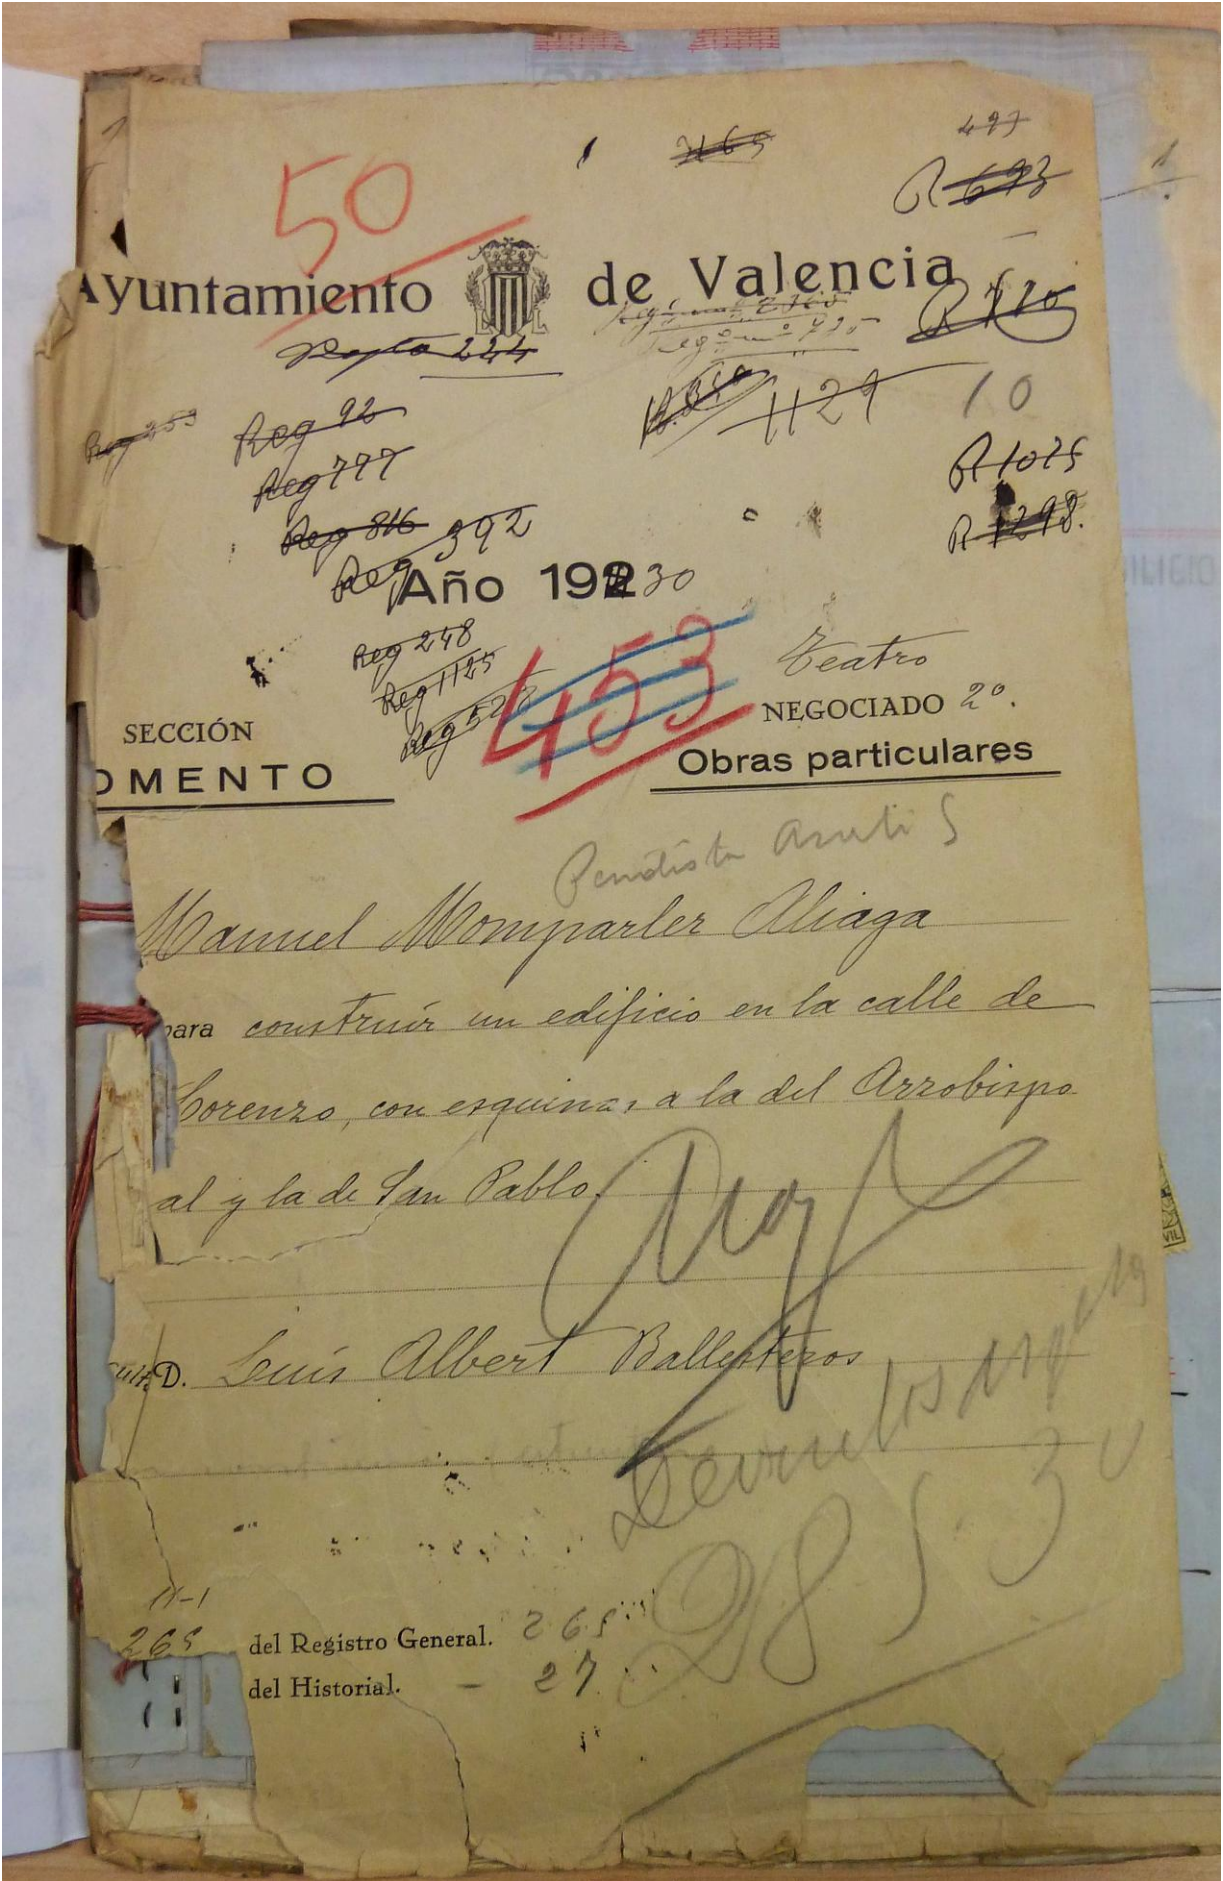 497
R 693
50
Ayuntamiento de Valencia
224
R 710
1129
10
Reg 92
Reg 777
R 1075
Reg 816
Reg 392
R 1298.
Año 192 30
Reg 248
Reg 1125
453
Teatro
SECCIÓN
NEGOCIADO 2º.
OMENTO
Obras particulares
Manuel Momparler Aliaga
para construir un edificio en la calle de
Lorenzo, con esquinas a la del Arzobispo
al y la de San Pablo.
D. Luis Albert Ballesteros
28 5 30
11-1
265 del Registro General. 265
del Historial. - 27